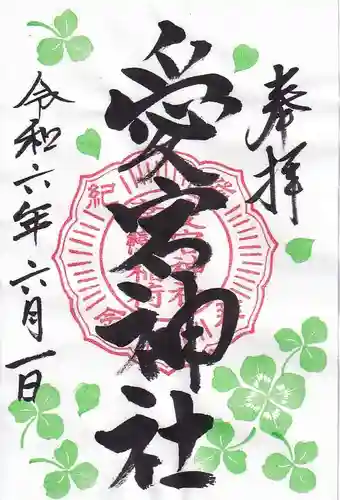 奉拝
愛宕神社
令和六年六月一日